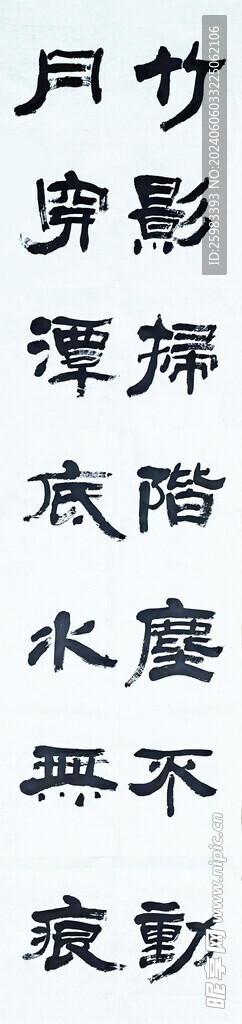 竹影掃階塵不動
月穿潭底水無痕
ID:25983393 NO:20240606033225062106
昵享网 www.nipic.cn